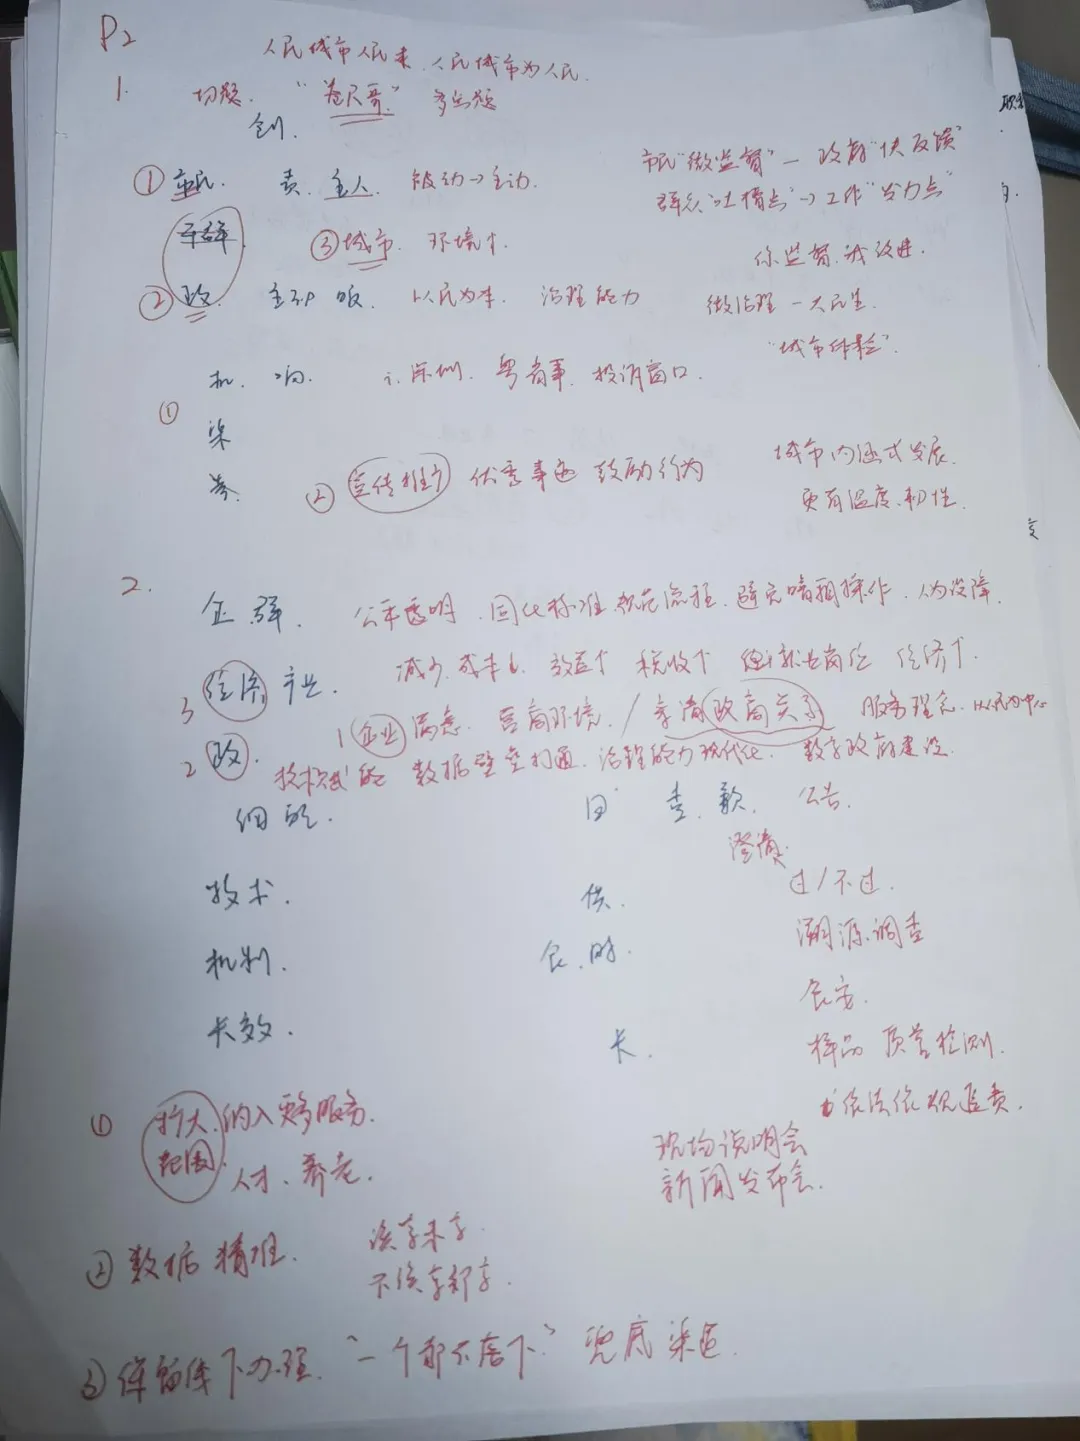 P2
人民城市人民建,人民城市为人民.
1. 切题. "卷尺哥" 多出题
创.
① 市民. 责.主人. 被动→主动.
市民"微监督"—政府"快反馈"
群众"吐槽点"→工作"发力点"
③城市. 环境↑.
你监督,我改进.
② 政. 主动 服. 以人民为本. 治理能力
微治理—大民生.
"城市体检".
机. 响. i深圳. 粤省事. 投诉窗口.
①
渠
城市内涵式发展.
② 宣传推广 优秀事迹 鼓励行为
更有温度.韧性.
2.
企.群. 公平透明. 固化标准规范流程. 避免暗箱操作. 人为设障.
减少.成本↓. 效益↑ 税收↑ 就业岗位 经济↑.
3 经济 产业.
1 企业满意. 营商环境. / 亲清政商关系 服务理念.以人民为中心
2 政. 技术赋能 数据壁垒打通.治理能力现代化. 数字政府建设.
回 查.歉. 公告.
澄清.
过/不过.
技术. 供.
溯源调查
机制.
食安.
长效. 长.
样品 质量检测.
依法依规追责.
① 扩大范围.纳入更多服务.
现场说明会
人才.养老.
新闻发布会.
② 数据精准. 该享未享.
不该享却享.
③保留线下办理. "一个都不落下." 兜底渠道.